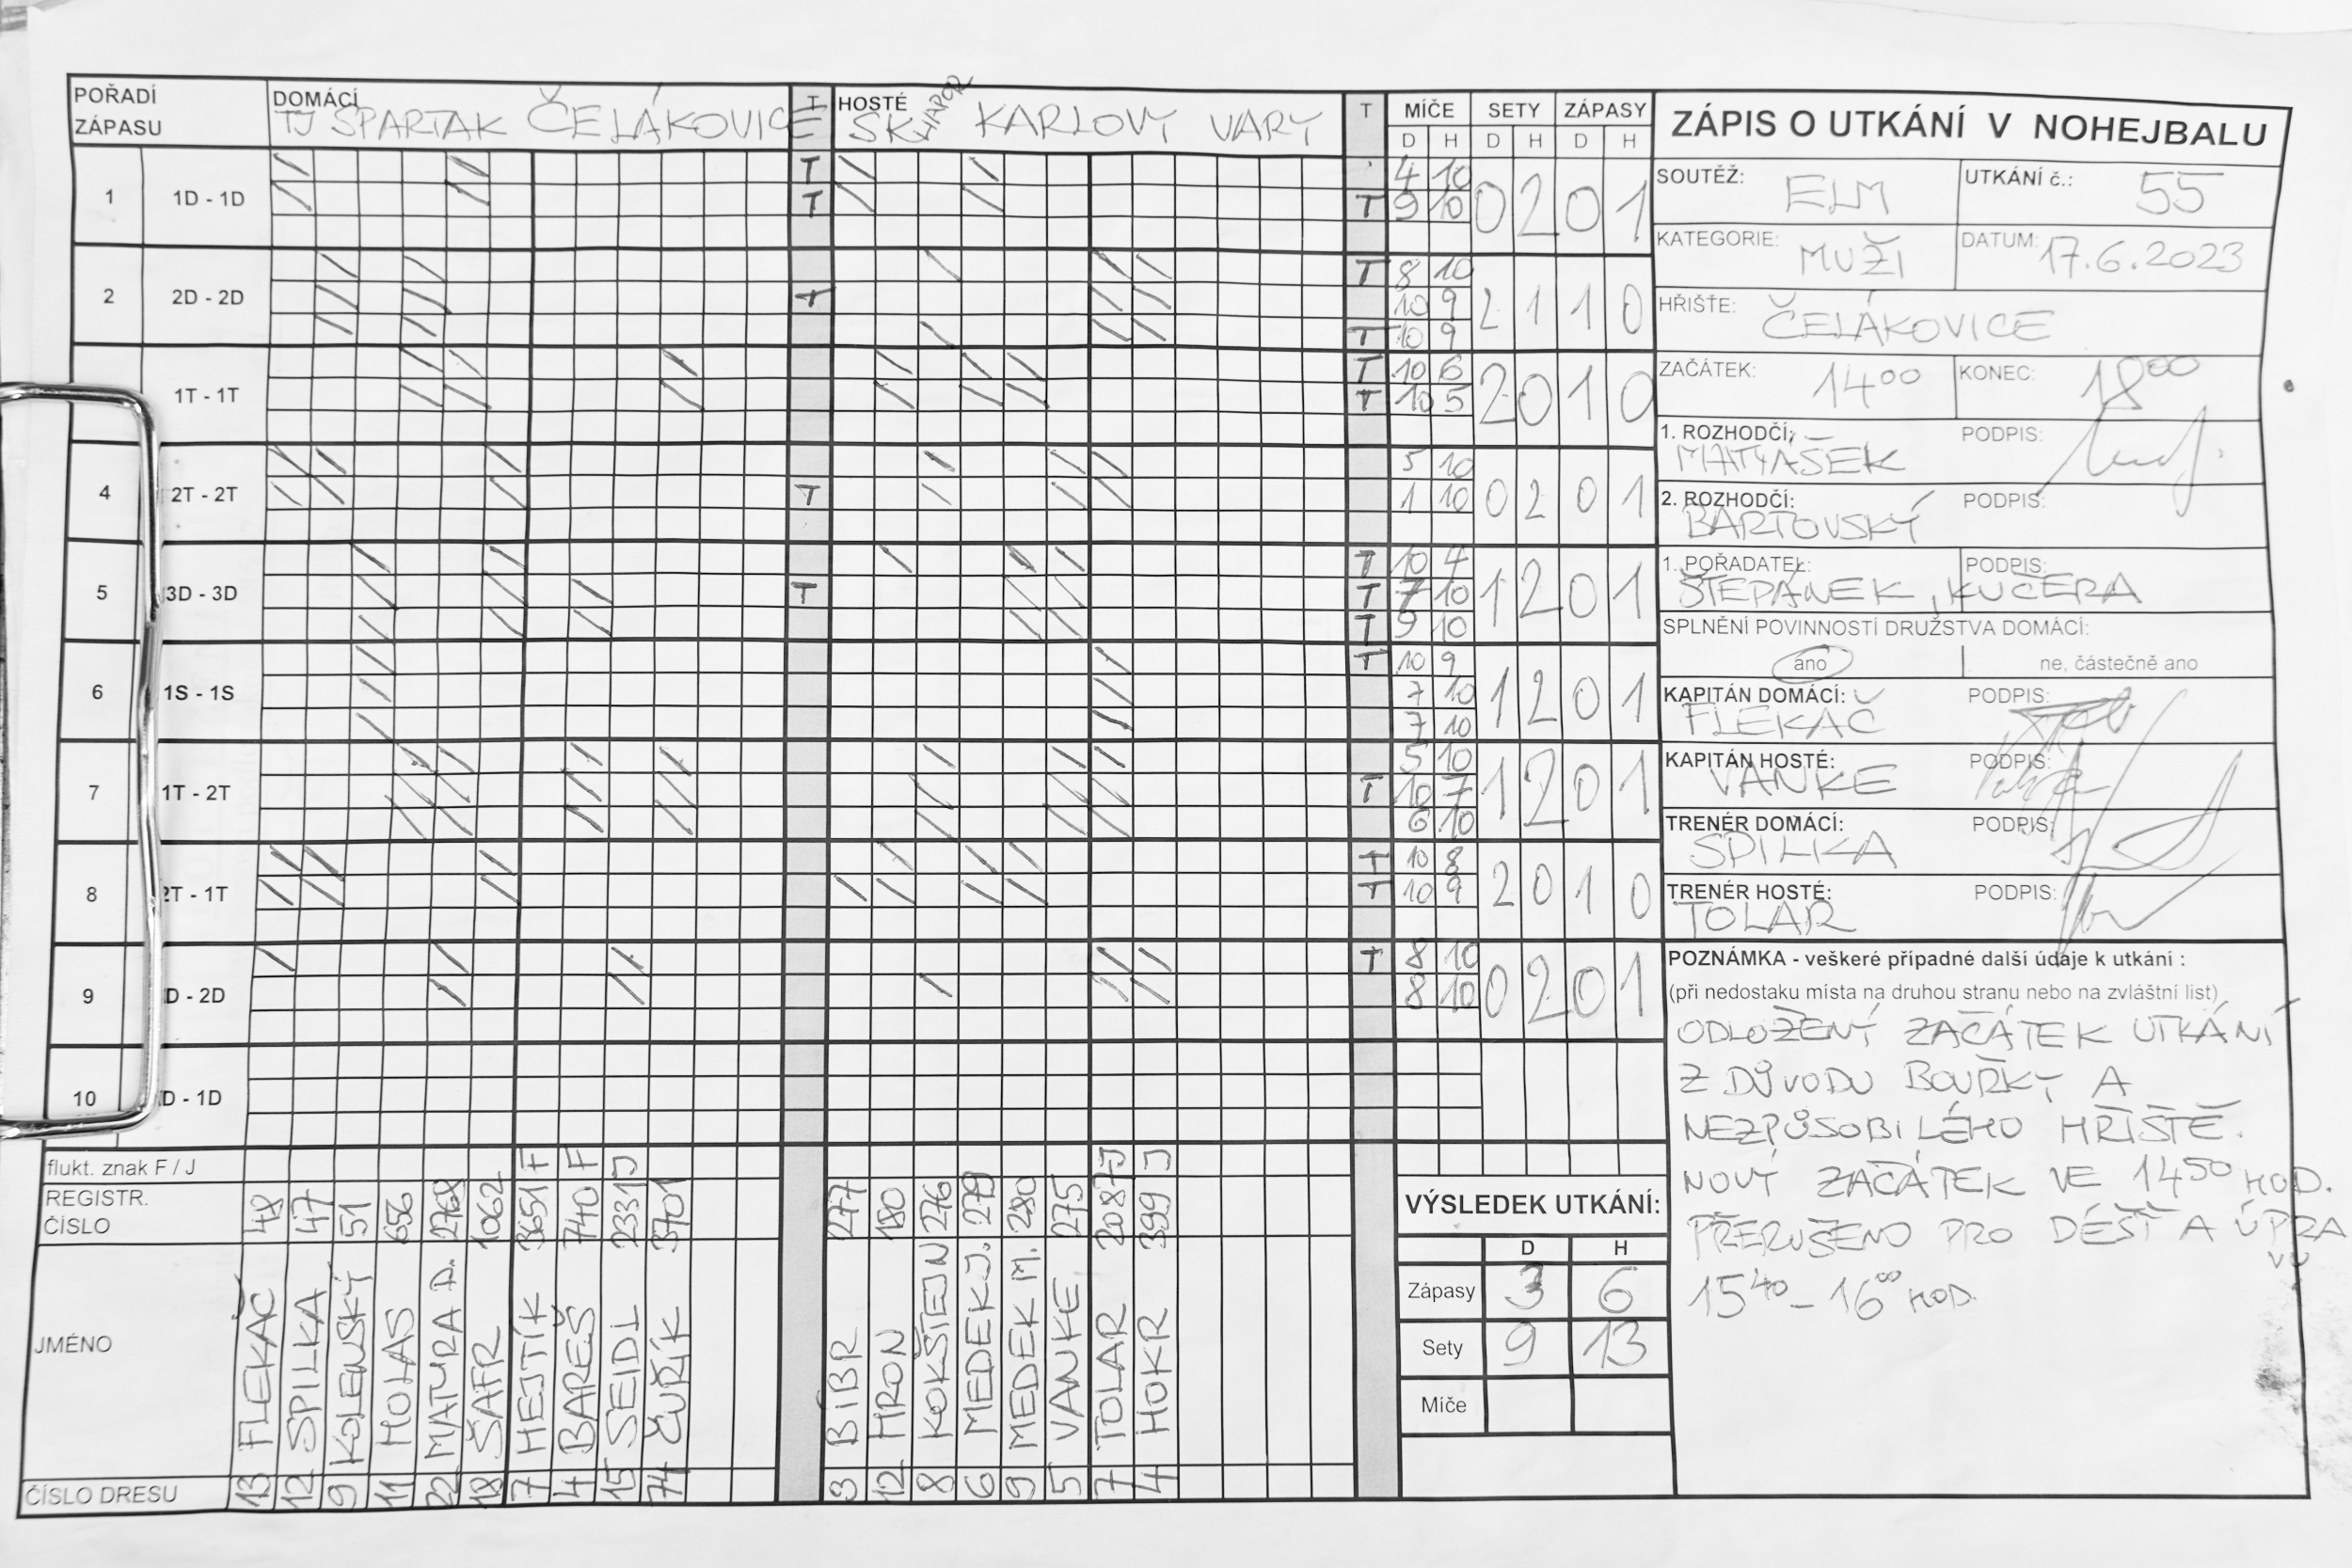 POŘADÍ ZÁPASU DOMÁCÍ TJ SPARTAK ČELÁKOVICE T HOSTÉ SK LIAPOR KARLOVY VARY T MÍČE SETY ZÁPASY
D H D H D H
ZÁPIS O UTKÁNÍ V NOHEJBALU
SOUTĚŽ: ELM UTKÁNÍ č.: 55
KATEGORIE: MUŽI DATUM: 17.6.2023
HŘIŠTE: ČELÁKOVICE
ZAČÁTEK: 14 00 KONEC: 18 00
1. ROZHODČÍ: MATYÁŠEK PODPIS:
2. ROZHODČÍ: BARTOVSKÝ PODPIS:
1. POŘADATEL: ŠTEPÁNEK, KUČERA PODPIS:
SPLNĚNÍ POVINNOSTÍ DRUŽSTVA DOMÁCÍ:
ano ne, částečně ano
KAPITÁN DOMÁCÍ: FLEKAČ PODPIS:
KAPITÁN HOSTÉ: VANKE PODPIS:
TRENÉR DOMÁCÍ: SPILKA PODPIS:
TRENÉR HOSTÉ: TOLAR PODPIS:
POZNÁMKA - veškeré případné další údaje k utkání :
(při nedostaku místa na druhou stranu nebo na zvláštní list)
ODLOŽENÝ ZAČÁTEK UTKÁNÍ
Z DŮVODU BOUŘKY A
NEZPŮSOBILÉHO HŘIŠTĚ.
NOVÝ ZAČÁTEK VE 14 50 HOD.
PŘERUŠENO PRO DÉŠŤ A ÚPRA
VU
15 40 - 16 00 HOD.
1 1D - 1D T 4 10 0 2 0 1
T T 9 10
2 2D - 2D T 8 10 2 1 1 0
T 10 9
T 10 9
1T - 1T T 10 6 2 0 1 0
T 10 5
4 2T - 2T 5 10 0 2 0 1
T 1 10
5 3D - 3D T 10 4 1 2 0 1
T T 7 10
T 9 10
6 1S - 1S T 10 9 1 2 0 1
7 10
7 10
7 1T - 2T 5 10 1 2 0 1
T 10 7
6 10
8 2T - 1T T 10 8 2 0 1 0
T 10 9
9 D - 2D T 8 10 0 2 0 1
8 10
10 D - 1D
flukt. znak F / J F F J J J
REGISTR. ČÍSLO 48 47 51 656 2768 1062 3651 7440 2331 3701 277 180 276 279 280 275 2087 399
JMÉNO FLEKAČ SPILKA KOLENSKÝ HOLAS MATURA D. ŠAFR HEJTÍK BAREŠ SEIDL ČUŘÍK BÍBR HRON KOKŠTEJN MEDEK J. MEDEK M. VANKE TOLAR HOKR
ČÍSLO DRESU 13 12 9 11 22 18 7 4 15 74 3 12 8 6 9 5 7 4
VÝSLEDEK UTKÁNÍ:
D H
Zápasy 3 6
Sety 9 13
Míče